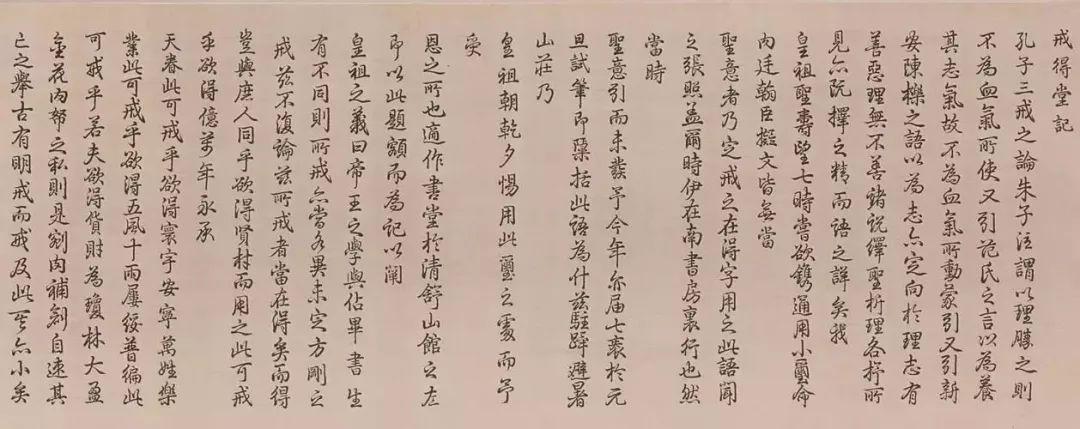 戒得堂記
孔子三戒之論朱子注謂以理勝之則
不為血氣所使又引范氏之言以為養
其志氣故不為血氣所動蒙引又引新
安陳櫟之語以為志亦定向於理志有
善惡理無不善諸説繹聖析理各抒所
見亦既擇之精而語之詳矣我
皇祖聖壽望七時嘗欲鐫通用小璽命
内廷翰臣擬文皆無當
聖意者乃定戒之在得字用之此語聞
之張照蓋爾時伊在南書房裏行也然
當時
聖意引而未發予今年亦届七袠於元
旦試筆即檃括此語為什兹駐蹕避暑
山莊乃
皇祖朝乾夕惕用此璽之處而予
受
恩之所也適作書堂於清舒山館之左
即以此題額而為記以闡
皇祖之義曰帝王之學與佔畢書生
有不同則所戒亦當各異未定方剛之
戒兹不復論兹所戒者當在得矣而得
豈與庶人同乎欲得賢材而用之此可戒
乎欲得億萬年永承
天眷此可戒乎欲得寰宇安寧萬姓樂
業此可戒乎欲得五風十雨屢綏普徧此
可戒乎若夫欲得貨財為瓊林大盈
金花内帑之私則是割肉補創自速其
亡之舉古有明戒而戒及此
亦小矣